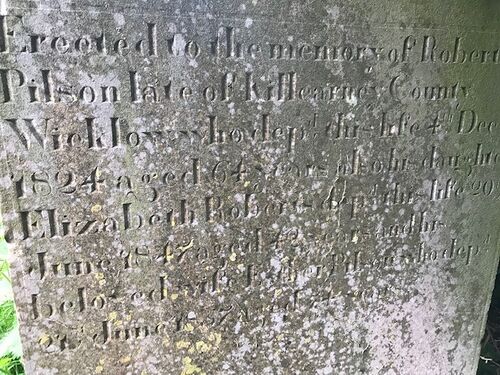 Erected to the memory of Robert
Pilson late of Killearney County
Wicklow who depd this life 4th Dec
1824 aged 64 years also his daughter
Elizabeth Roberts depd this life 20
June 1847 aged 42 years and his
beloved wife Esther Pilson who depd
June aged years